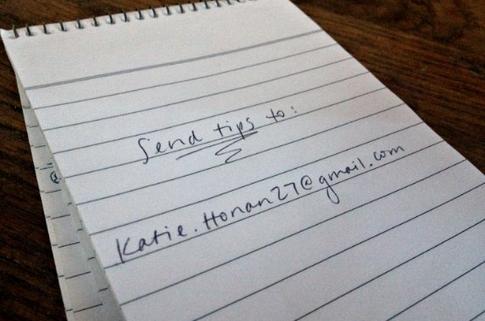 Send tips to:
Katie.Honan27@gmail.com